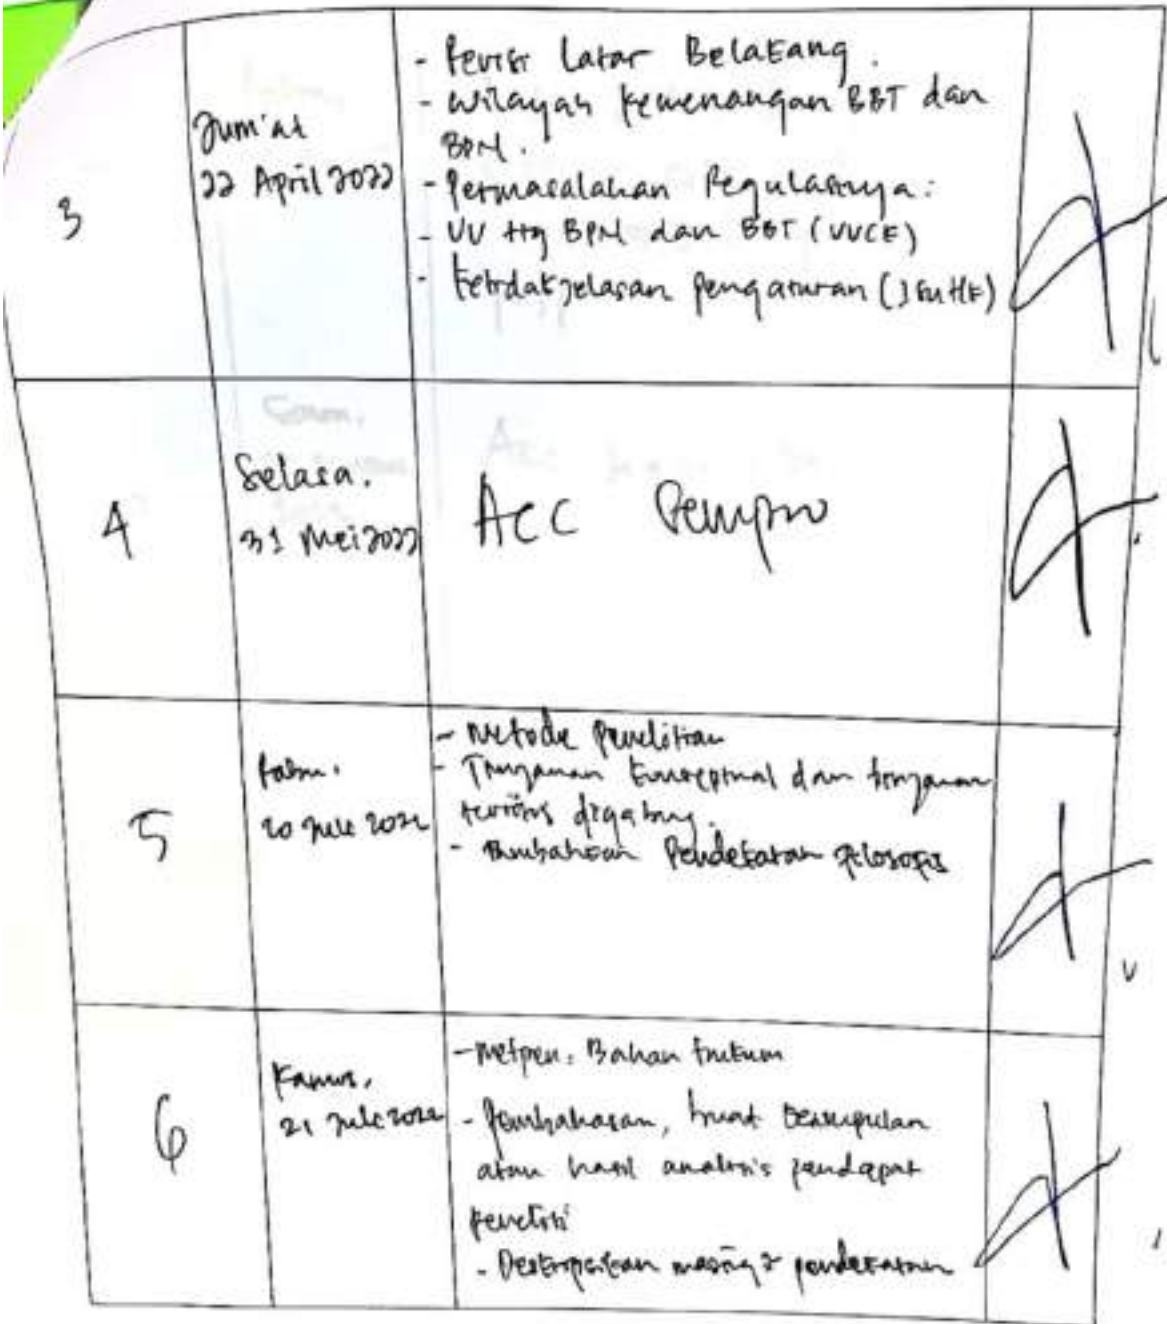 3
Jum'at
22 April 2022
- Revisi Latar Belakang.
- Wilayah Kewenangan BBT dan
BPN.
- Permasalahan Regulasinya:
- UU ttg BPN dan BBT (UUCK)
- Ketidakjelasan pengaturan
4
Selasa.
31 Mei 2022
ACC Sempro
5
Rabu.
20 Juli 2022
- Metode Penelitian
- Tinjauan Konseptual dan tinjauan
teoritis digabung.
- Tambahkan Pendekatan filosofis
6
Kamis,
21 Juli 2022
- Metpen: Bahan Hukum
- Pembahasan, buat kesimpulan
atau hasil analisis pendapat
peneliti
- Deskripsikan masing2 pendekatan